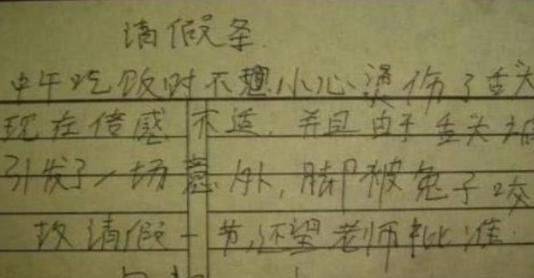 请假条
中午吃饭时不想小心烫伤了舌头
现在倍感不适,并且由于舌头
引发了一场意外,脚被兔子咬
故请假一节,还望老师批准.